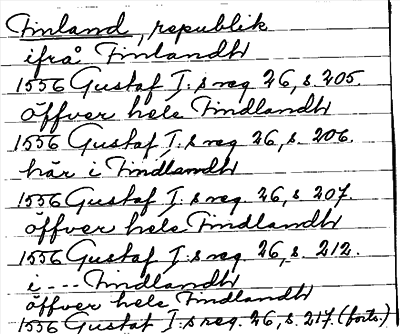 Finland, republik
ifrå Finlandh
1556 Gustaf I:s reg. 26, s. 205.
öffver hele Findlandh
1556 Gustaf I:s reg. 26, s. 206.
här i Findlandh
1556 Gustaf I:s reg. 26, s. 207.
öffver hele Findlandh
1556 Gustaf I:s reg. 26, s. 212.
i --- Findlandh
öffver hele Findlandh
1556 Gustaf I:s reg. 26, s. 217. (forts.)